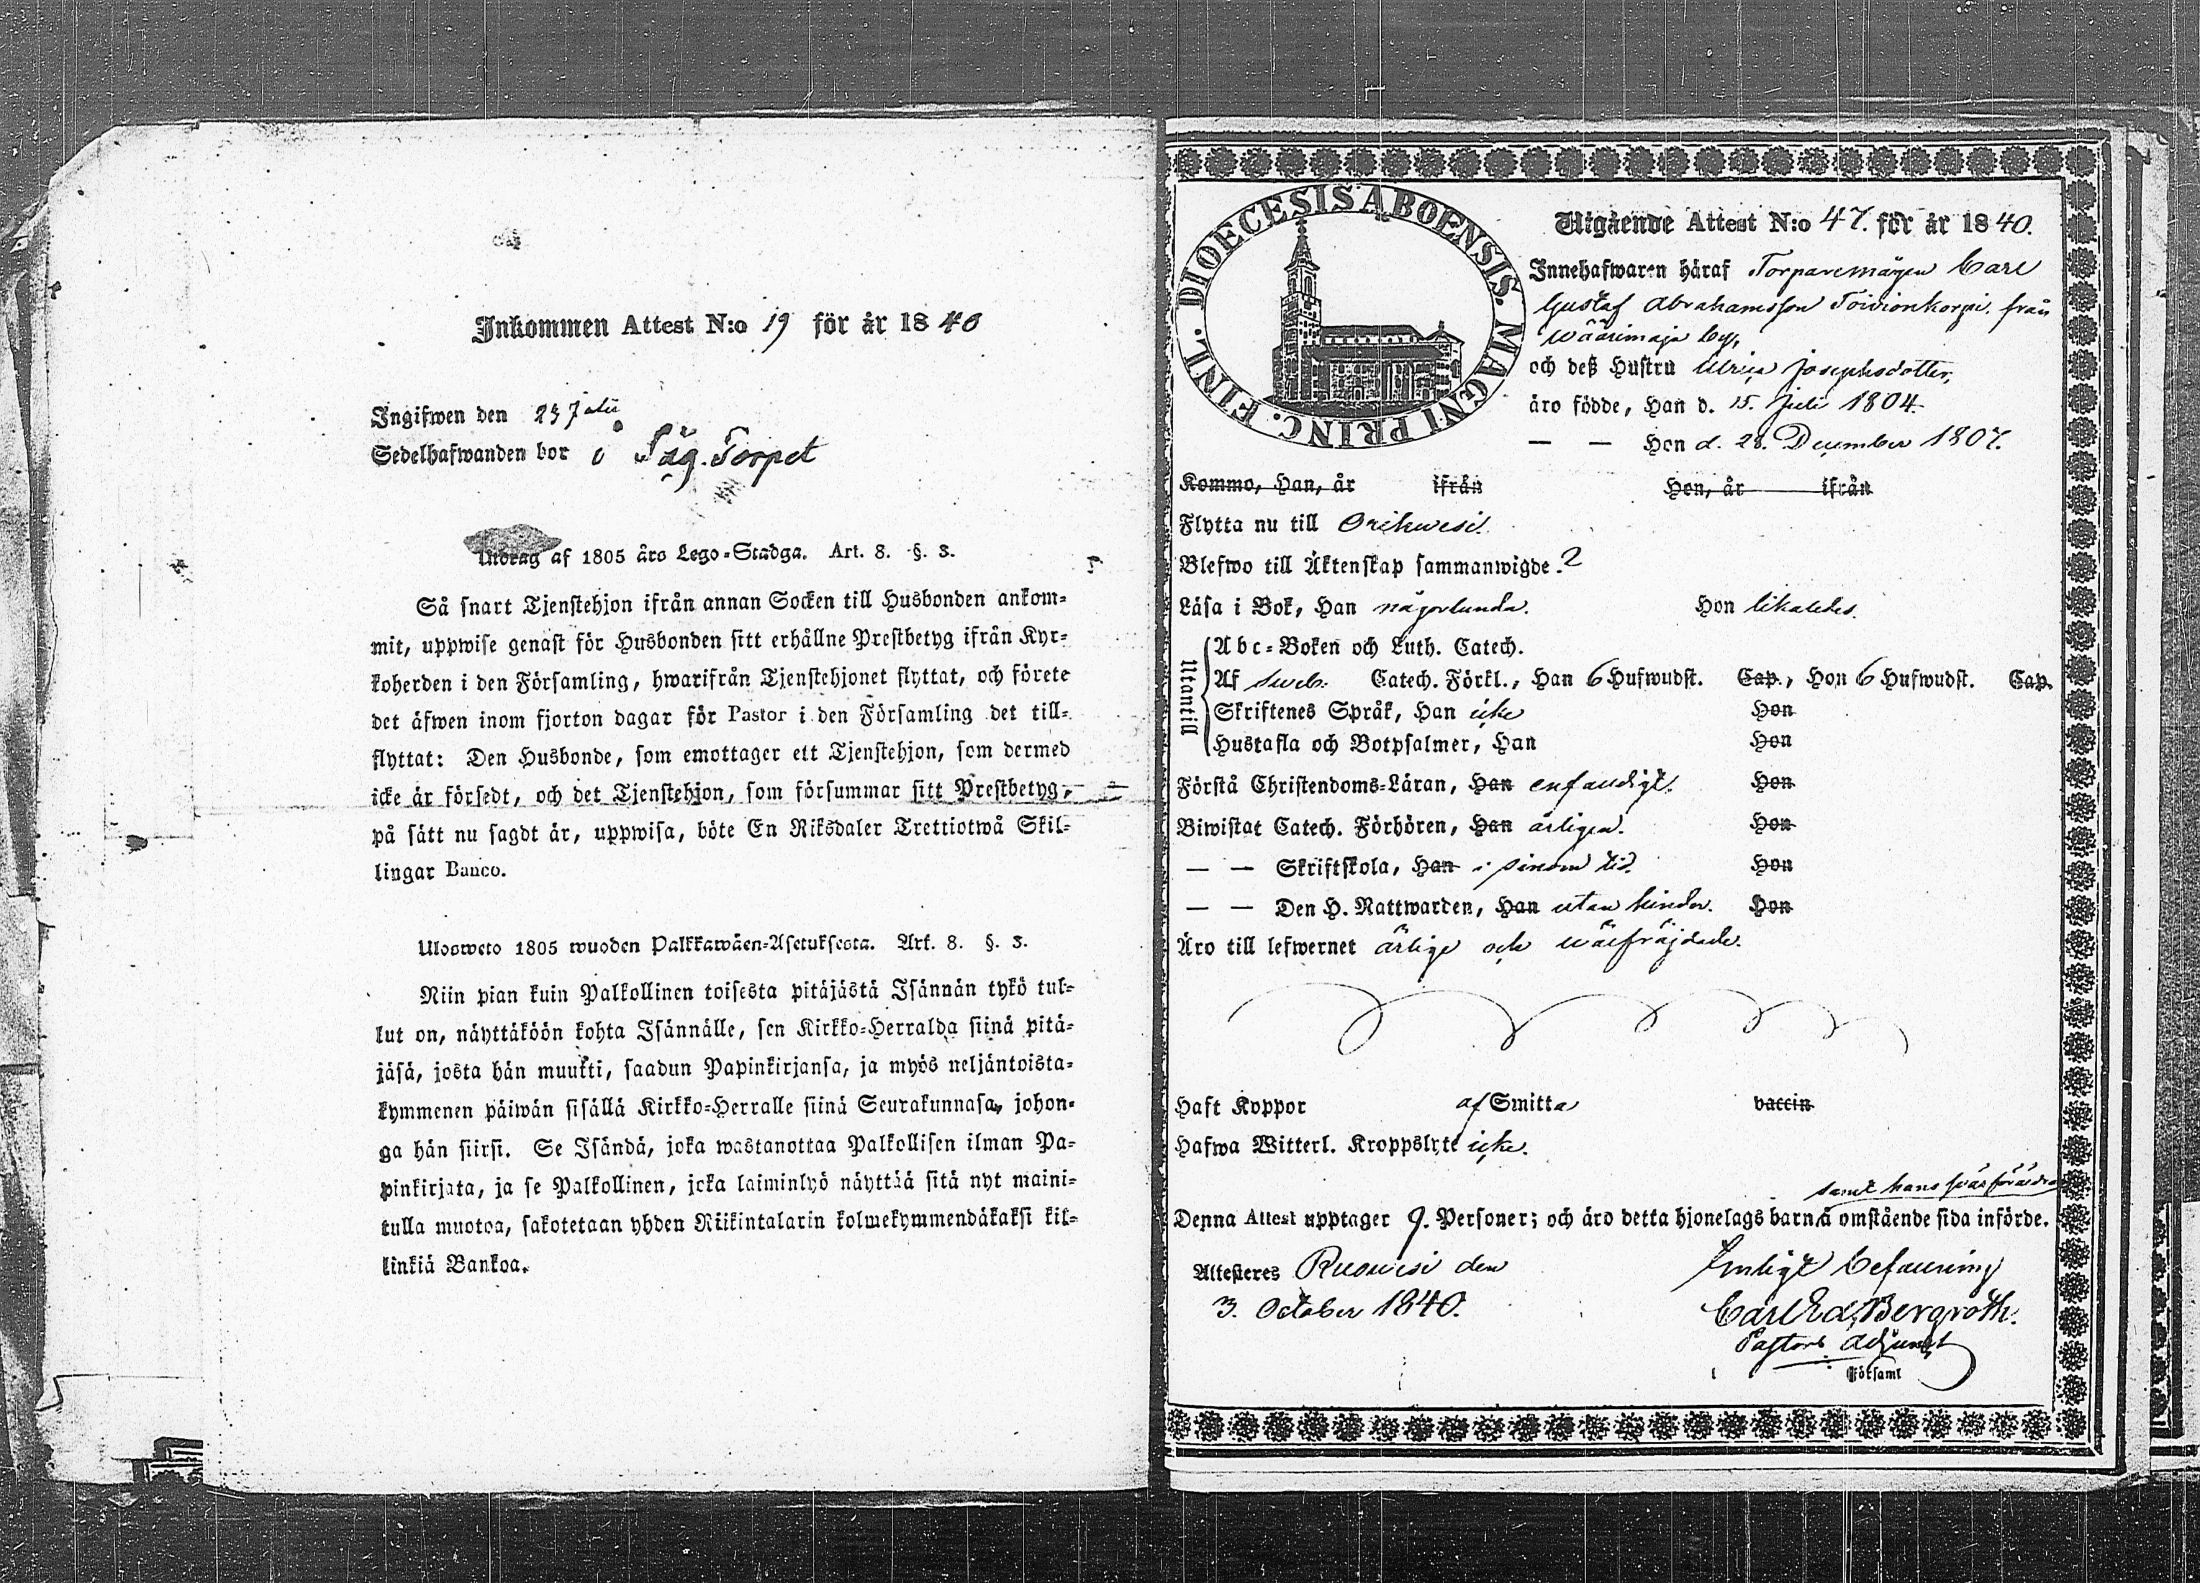 Inkommen Attest N:o 19 för år 1840
Ingifwen den 23
Sedelhafwanden bor i Såg. Torpet
Utdrag af 1805 års Lego-Stadga. Art. 8. §. 3.
Så snart Tjenstehjon ifrån annan Socken till Husbonden ankom-
mit, uppwise genast för Husbonden sitt erhållne Prestbetyg ifrån Kyr-
koherden i den Församling, hwarifrån Tjenstehjonet flyttat, och förete
det äfwen inom fjorton dagar för Pastor i den Församling det till-
flyttat: Den Husbonde, som emottager ett Tjenstehjon, som dermed
icke är försedt, och det Tjenstehjon, som försummar sitt Prestbetyg,
på sätt nu sagdt är, uppwisa, böte En Riksdaler Trettiotwå Skil-
lingar Banco.
Ulosweto 1805 wuoden Palkkawäen-Asetuksesta. Art. 8. §. 3.
Niin pian kuin Palkollinen toisesta pitäjästä Isännän tykö tul-
lut on, näyttäköön kohta Isännälle, sen Kirkko-Herralda siinä pitä-
jäsä, josta hän muukti, saadun Papinkirjansa, ja myös neljäntoista-
kymmenen päiwän sisällä Kirkko-Herralle siinä Seurakunnasa, johon-
ga hän siirsi. Se Isändä, joka wastanottaa Palkollisen ilman Pa-
pinkirjata, ja se Palkollinen, joka laiminlyö näyttää sitä nyt maini-
tulla muotoa, sakotetaan yhden Riikintalarin kolmekymmendäkaksi kil-
linkiä Bankoa.
DIOECESIS ABOENSIS. MAGNI PRINC. FINL.
Utgående Attest N:o 47. för år 1840.
Innehafwaren häraf Torparemågen Carl
Gustaf Abrahamsson Toivionkorpi, från
Wäärimaja by,
och deß Hustru Ulrica Josephsdotter,
äro födde, Han d. 15. Juli 1804.
— — Hon d. 28. December 1807.
Kommo, Han, år ifrån Hon, år ifrån
Flytta nu till Orihwesi.
Blefwo till Äktenskap sammanwigde. ?
Läsa i Bok, Han någorlunda. Hon likaledes.
Utantill
Abc-Boken och Luth. Catech.
Af Sweb. Catech. Förkl., Han 6 Hufwudst. Cap., Hon 6 Hufwudst. Cap.
Skriftenes Språk, Han icke Hon
Hustafla och Botpsalmer, Han Hon
Förstå Christendoms-Läran, Han enfaldigt. Hon
Biwistat Catech. Förhören, Han årligen. Hon
— — Skriftskola, Han i sinom tid. Hon
— — Den H. Nattwarden, Han utan hinder. Hon
Äro till lefwernet ärlige och wälfräjdade.
Haft Koppor af Smitta vaccin
Hafwa Witterl. Kroppslyte icke.
samt hans swärföräldra
Denna Attest upptager 9. Personer; och äro detta hjonelags barn å omstående sida införde.
Attesteres Ruowesi den Enligt befallning
3. October 1840. Carl Ed. Bergroth.
Pastors Adjunct
Församl